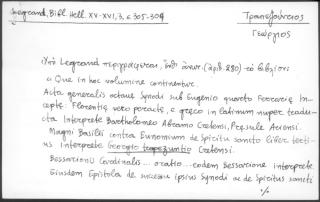 Legrand, Bibl. Hell. XV-XVI, 3, σ. 305-309
Τραπεζούντιος
Γεώργιος
Ὁ Legrand περιγράφει, ὑπ' ἀριθ. 280) τὸ βιβλίον:
« Que in hoc volumine continentur.
Acta generalis octaue Synodi sub Eugenio quarto Ferrarie In-
cepte: Florentie vero peracte, e greco in latinum nuper tradu-
cta Interprete Bartholomeo Abramo Cretensi, Presule Ariensi.
Magni Basilii contra Eunomium de Spiritu sancto liber terti-
us interprete Georgio trapezuntio Cretensi.
Bessarionis Cardinalis... oratio... eodem Bessarione interprete
Eiusdem Epistola de successu ipsius Synodi ac de Spiritus sancti
·/.